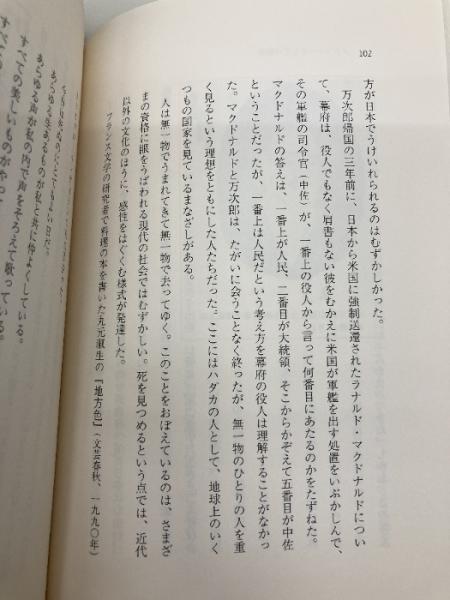 102
方が日本でうけいれられるのはむずかしかった。
万次郎帰国の三年前に、日本から米国に強制送還されたラナルド・マクドナルドについ
て、幕府は、役人でもなく肩書もない彼をむかえに米国が軍艦を出す処置をいぶかしんで、
その軍艦の司令官（中佐）が、一番上の役人から言って何番目にあたるのかをたずねた。
マクドナルドの答えは、一番上が人民、二番目が大統領、そこからかぞえて五番目が中佐
ということだったが、一番上は人民だという考え方を幕府の役人は理解することがなかっ
た。マクドナルドと万次郎は、たがいに会うことなく終ったが、無一物のひとりの人を重
く見るという理想をともにした人たちだった。ここにはハダカの人として、地球上のいく
つもの国家を見ているまなざしがある。
人は無一物でうまれてきて無一物で去ってゆく。このことをおぼえているのは、さまざ
まの資格に眼をうばわれる現代の社会ではむずかしい。死を見つめるという点では、近代
以外の文化のほうに、感性をはぐくむ様式が発達した。
フランス文学の研究者で料理の本を書いた丸元淑生の『地方色』（文芸春秋、一九九〇年）
あらゆる生あるものが私と共に仲よくしている。
あらゆる声が私の内で声をそろえて歌っている。
すべての美しいものがやって